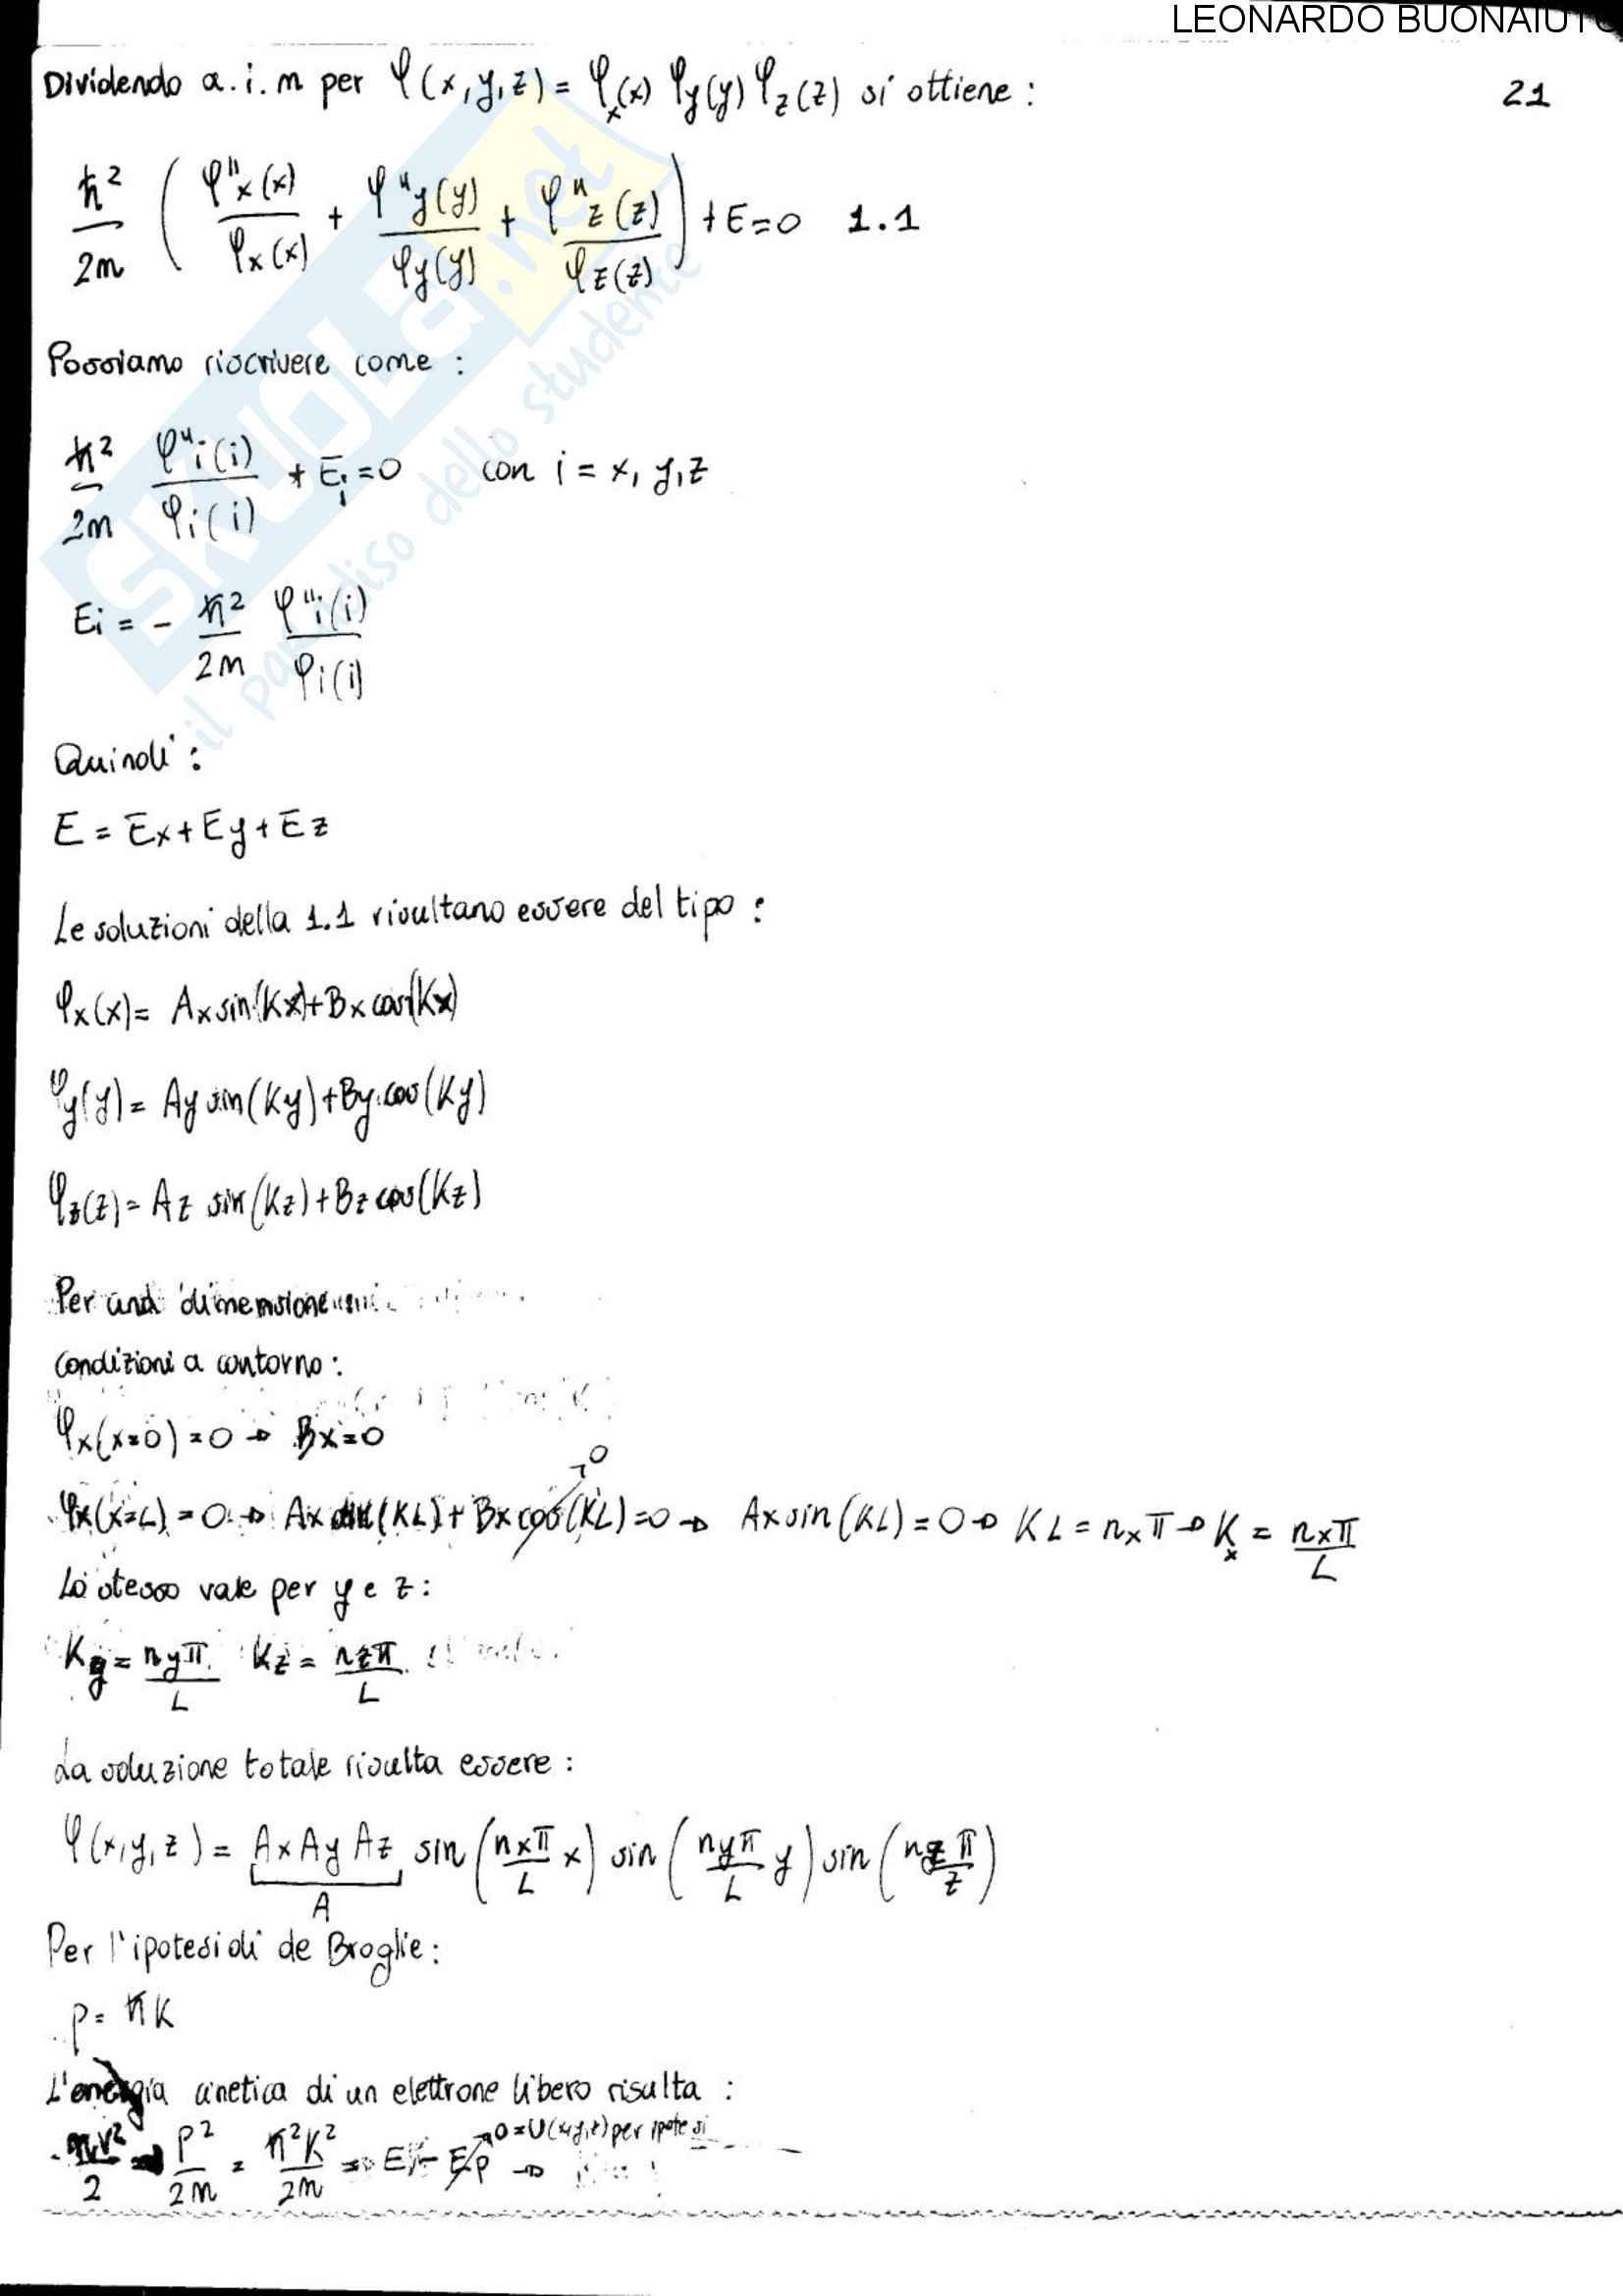 LEONARDO BUONAIUTO
21
Dividendo a.i.m per φ(x,y,z) = φx(x) φy(y) φz(z) si ottiene :
ħ²/2m ( φ''x(x)/φx(x) + φ''y(y)/φy(y) + φ''z(z)/φz(z) ) + E = 0 1.1
Possiamo riscrivere come :
ħ²/2m φ''i(i)/φi(i) + Ei = 0 con i = x, y, z
Ei = - ħ²/2m φ''i(i)/φi(i)
Quindi :
E = Ex + Ey + Ez
Le soluzioni della 1.1 risultano essere del tipo :
φx(x) = Ax sin(Kx) + Bx cos(Kx)
φy(y) = Ay sin(Ky) + By cos(Ky)
φz(z) = Az sin(Kz) + Bz cos(Kz)
Per una dimensione
Condizioni a contorno :
φx(x=0) = 0 → Bx = 0
φx(x=L) = 0 → Ax sin(KL) + Bx cos(KL) = 0 → Ax sin(KL) = 0 → KL = nxπ → Kx = nxπ/L
→ 0
Lo stesso vale per y e z :
Ky = nyπ/L Kz = nzπ/L
La soluzione totale risulta essere :
φ(x,y,z) = Ax Ay Az sin(nxπ/L x) sin(nyπ/L y) sin(nzπ/z)
A
Per l'ipotesi di de Broglie :
p = ħK
L'energia cinetica di un elettrone libero risulta :
→ 0 = U(x,y,z) per ipotesi
mv²/2 = P²/2m = ħ²K²/2m = E - Ep →
SKUOLA.net
il paradiso dello studente